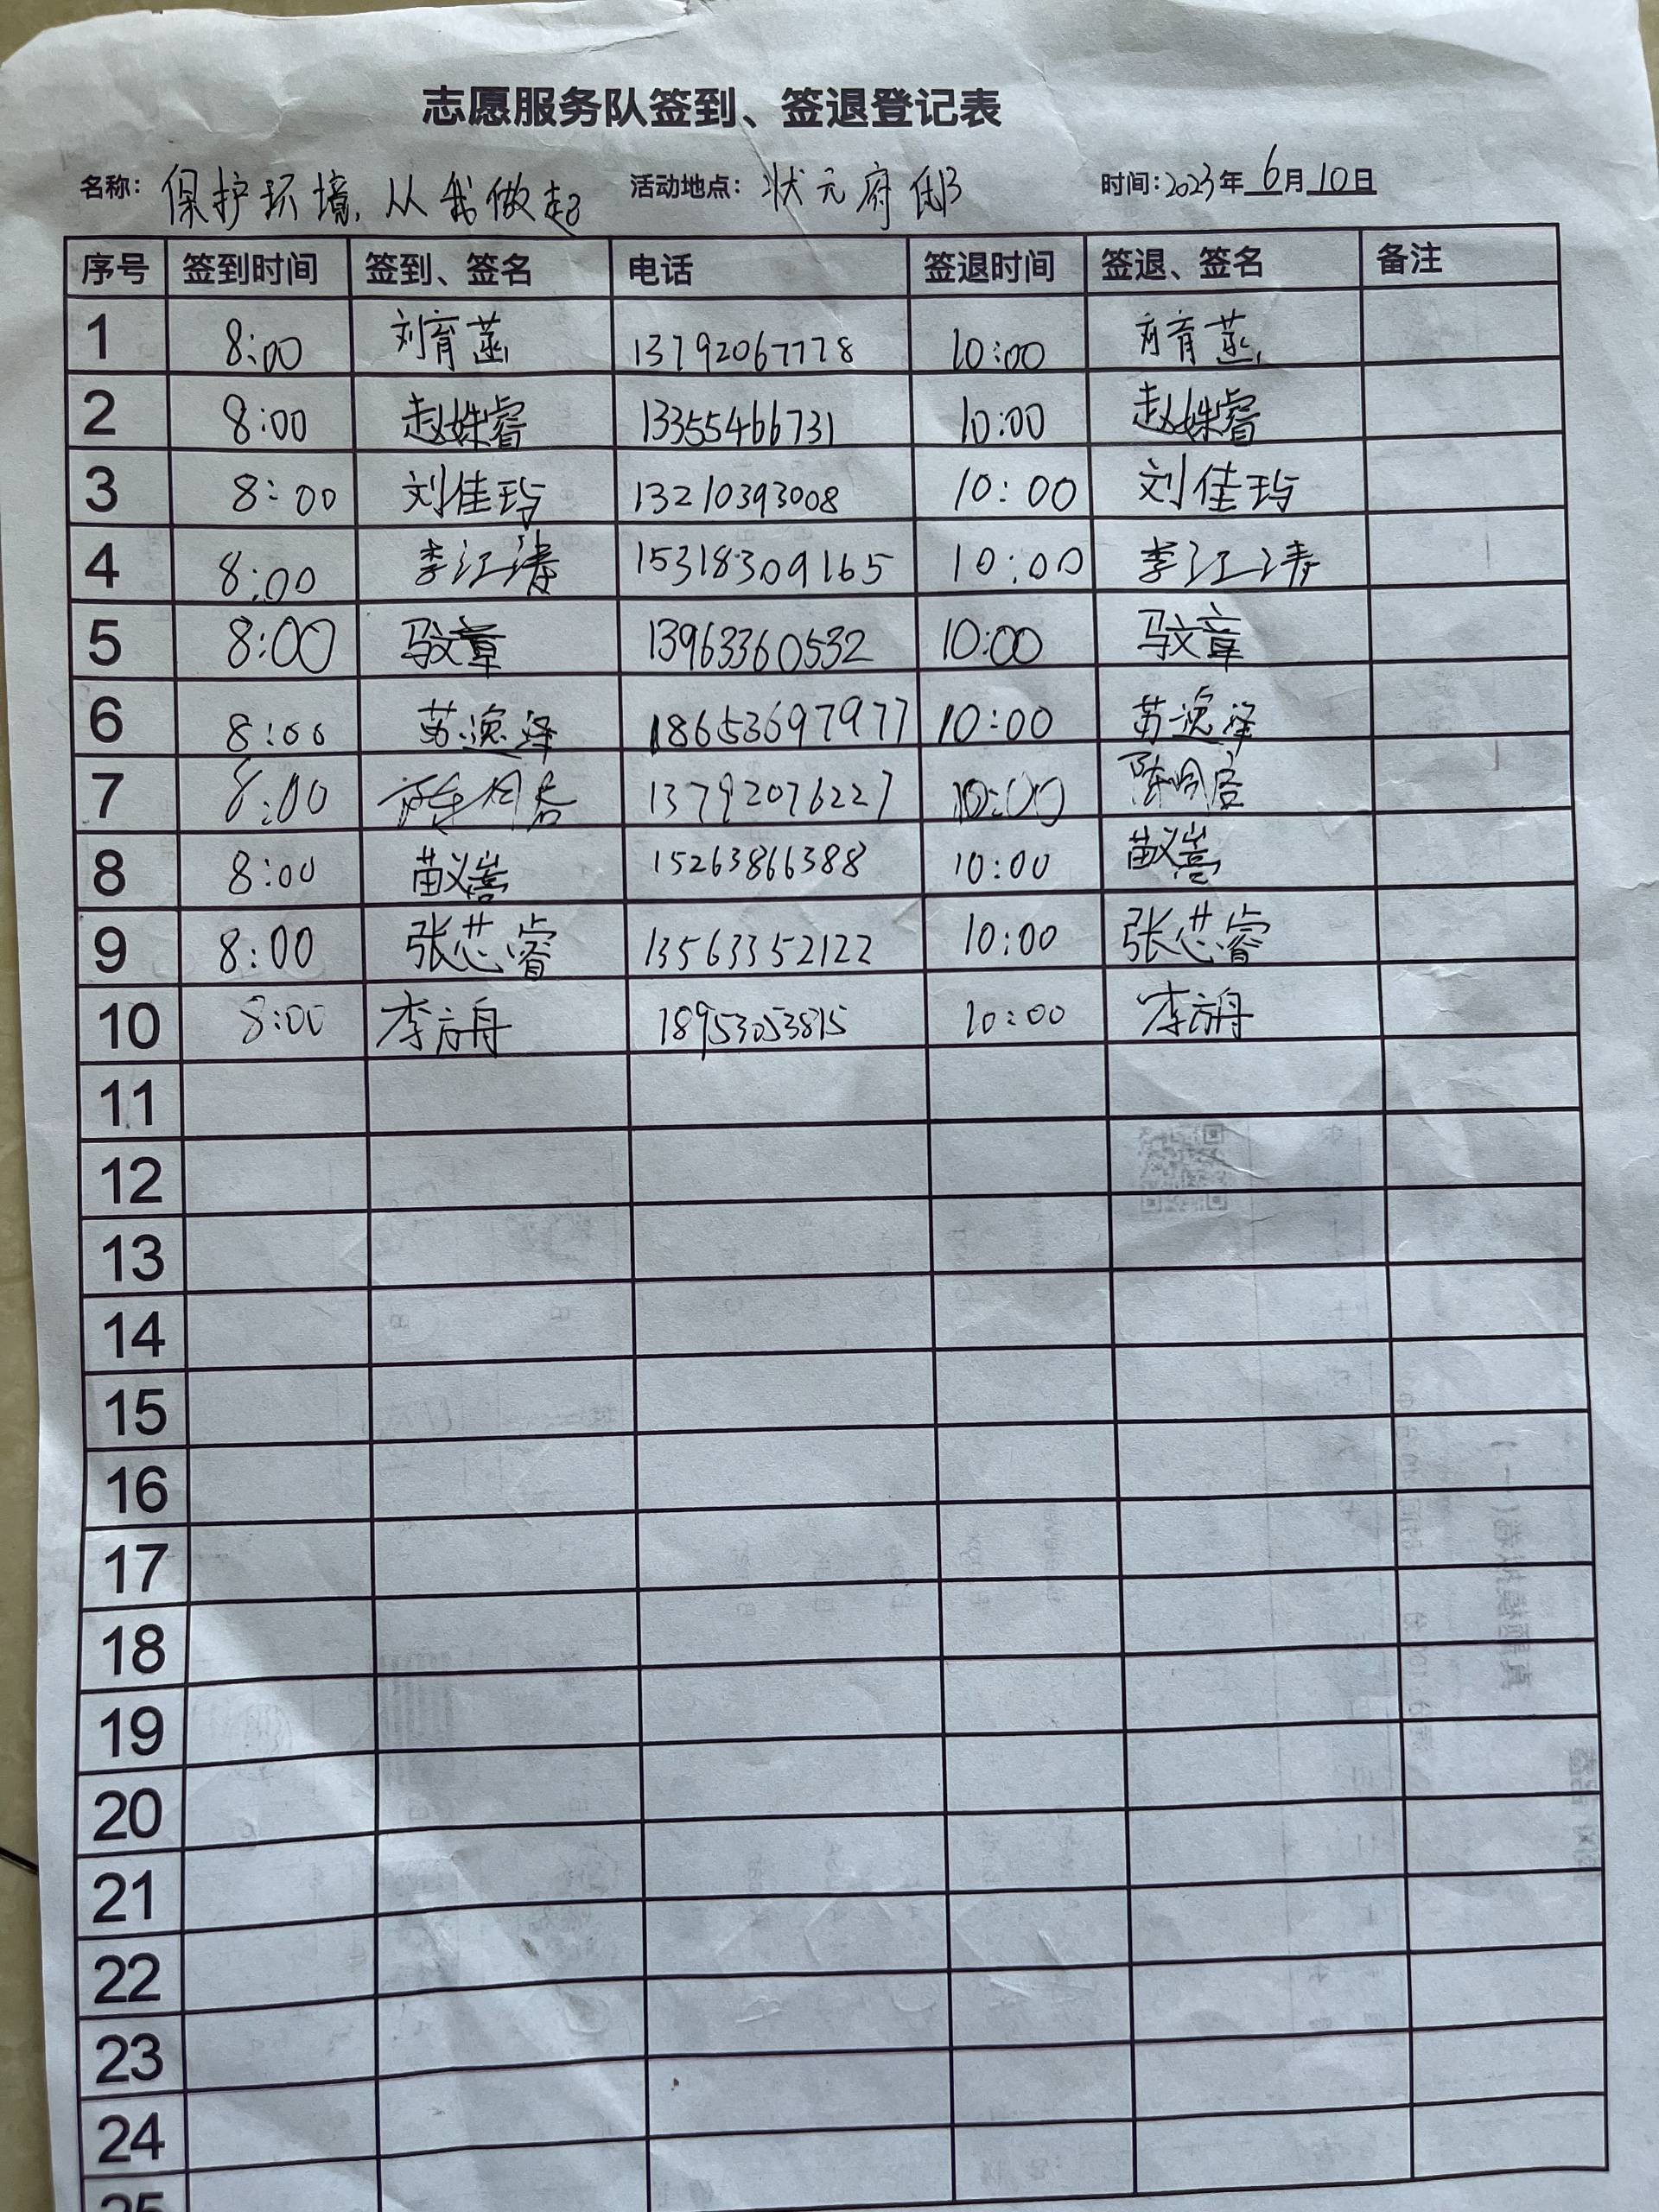 志愿服务队签到、签退登记表
名称：保护环境，从我做起 活动地点：状元府邸 时间：2023年6月10日
序号 签到时间 签到、签名 电话 签退时间 签退、签名 备注
1 8:00 刘育菡 13792067778 10:00 刘育菡
2 8:00 赵姝睿 13355466731 10:00 赵姝睿
3 8:00 刘佳玙 13210393008 10:00 刘佳玙
4 8:00 李江涛 15318309165 10:00 李江涛
5 8:00 马文章 13963360532 10:00 马文章
6 8:00 苗逸泽 18653697977 10:00 苗逸泽
7 8:00 13792076227 10:00
8 8:00 苗义嵩 15263866388 10:00 苗义嵩
9 8:00 张芯睿 13563352122 10:00 张芯睿
10 8:00 李方舟 18953053815 10:00 李方舟
11
12
13
14
15
16
17
18
19
20
21
22
23
24
25